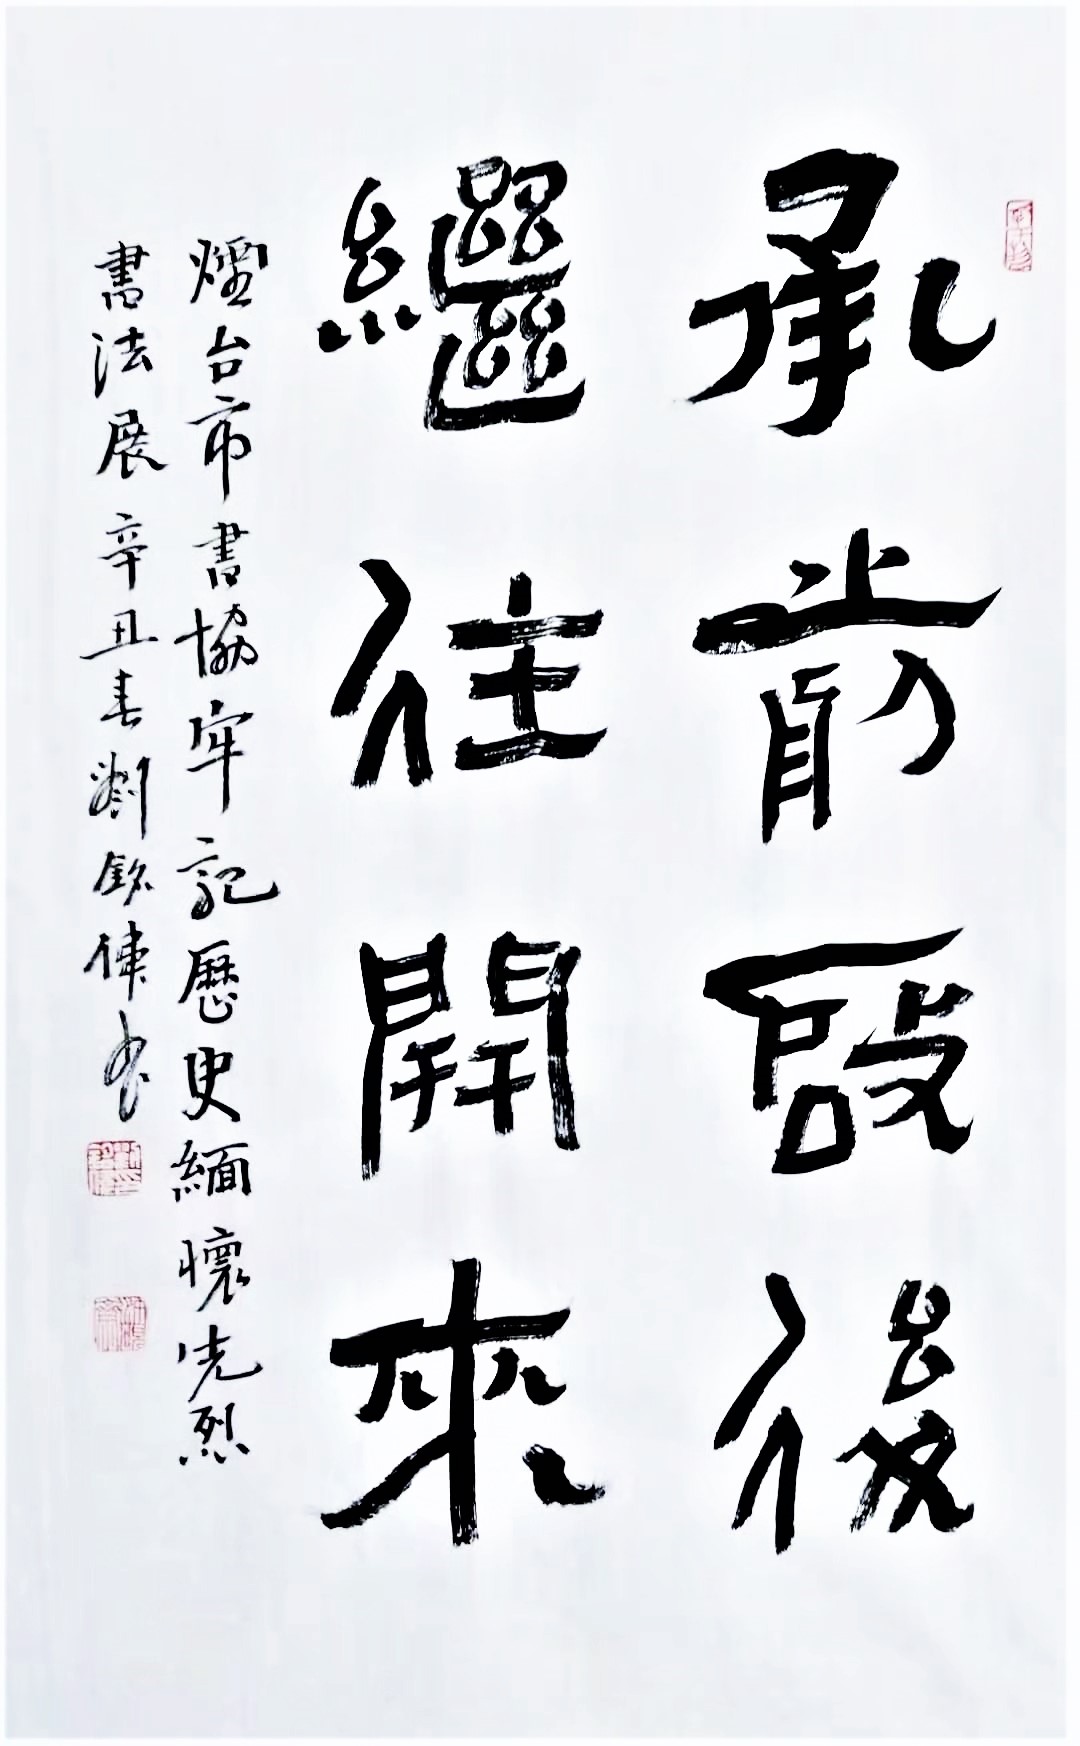 承前啟後
繼往開來
煙台市書協牢記歷史緬懷先烈
書法展辛丑春劉銘偉書